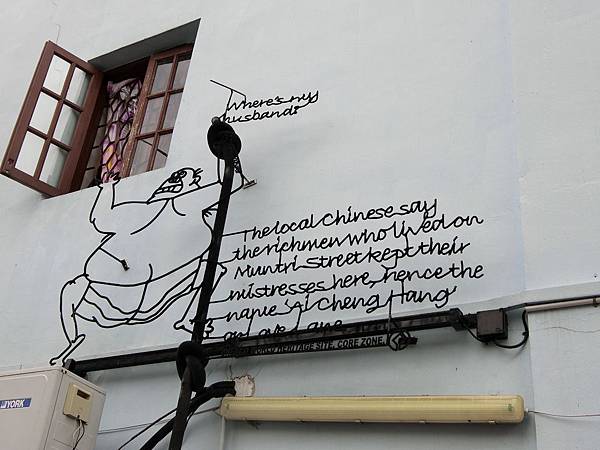 Where's my
husband?
The local Chinese say
the richmen who lived on
Muntri Street kept their
mistresses here, hence the
name 'Ai Cheng Hang'
or Love Lane
WORLD HERITAGE SITE, CORE ZONE.
YORK